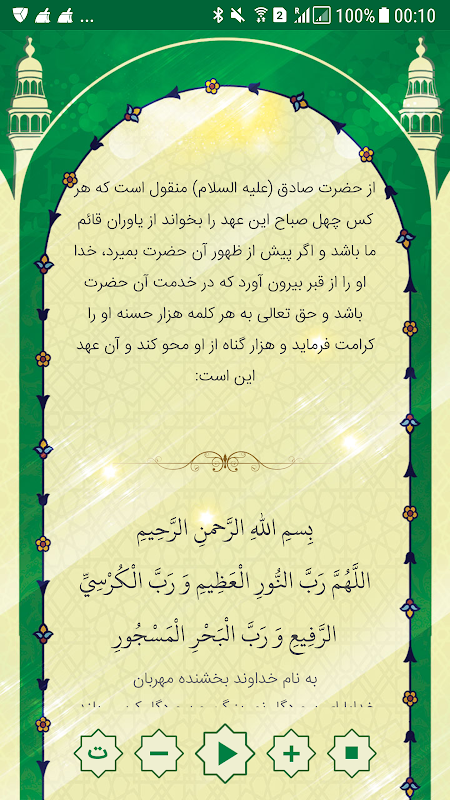 ... 2 R 100% 00:10
از حضرت صادق (علیه السلام) منقول است که هر
کس چهل صباح این عهد را بخواند از یاوران قائم
ما باشد و اگر پیش از ظهور آن حضرت بمیرد، خدا
او را از قبر بیرون آورد که در خدمت آن حضرت
باشد و حق تعالی به هر کلمه هزار حسنه او را
کرامت فرماید و هزار گناه از او محو کند و آن عهد
این است:
بِسمِ اللهِ الرَّحمنِ الرَّحِيمِ
اللَّهُمَّ رَبَّ النُّورِ الْعَظِيمِ وَ رَبَّ الْكُرْسِيِّ
الرَّفِيعِ وَ رَبَّ الْبَحْرِ الْمَسْجُورِ
به نام خداوند بخشنده مهربان
ت